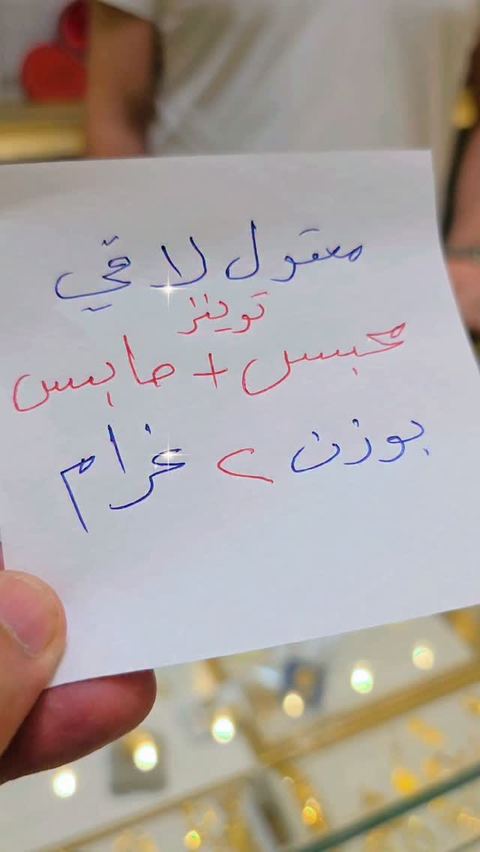 معقول لاقي
توينز
محبس + حابس
بوزن ٢ غرام